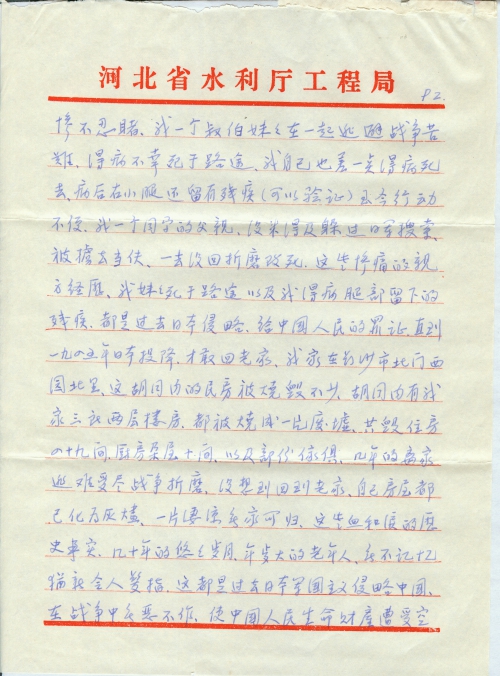 河北省水利厅工程局
P2.
惨不忍睹、我一个叔伯妹妹在一起逃避战争苦
难、得病不幸死于路途、我自己也差一点得病死
去、病后右小腿还留有残疾(可以验证)至今行动
不便、我一个同学的父亲、没来得及躲过日军搜索、
被掳去当伕、一去没回折磨致死、这些惨痛的亲
身经历、我妹妹死于路途以及我得病腿部留下的
残疾、都是过去日本侵略、给中国人民的罪证、直到
一九四五年日本投降、才敢回老家、我家在长沙市北门西
园北里、这胡同内的民房被烧毁不少、胡同内有我
家三所两层楼房、都被烧成一片废墟、共毁住房
四十九间、厨房杂屋十间、以及部份傢俱、几年的离家
逃难受尽战争折磨、没想到回到老家、自己房屋都
已化为灰烬、一片凄凉无家可归、这些血和泪的历
史事实、几十年的悠悠岁月、年岁大的老年人、无不记忆
犹新令人发指、这都是过去日本军国主义侵略中国、
在战争中无恶不作、使中国人民生命财产遭受空